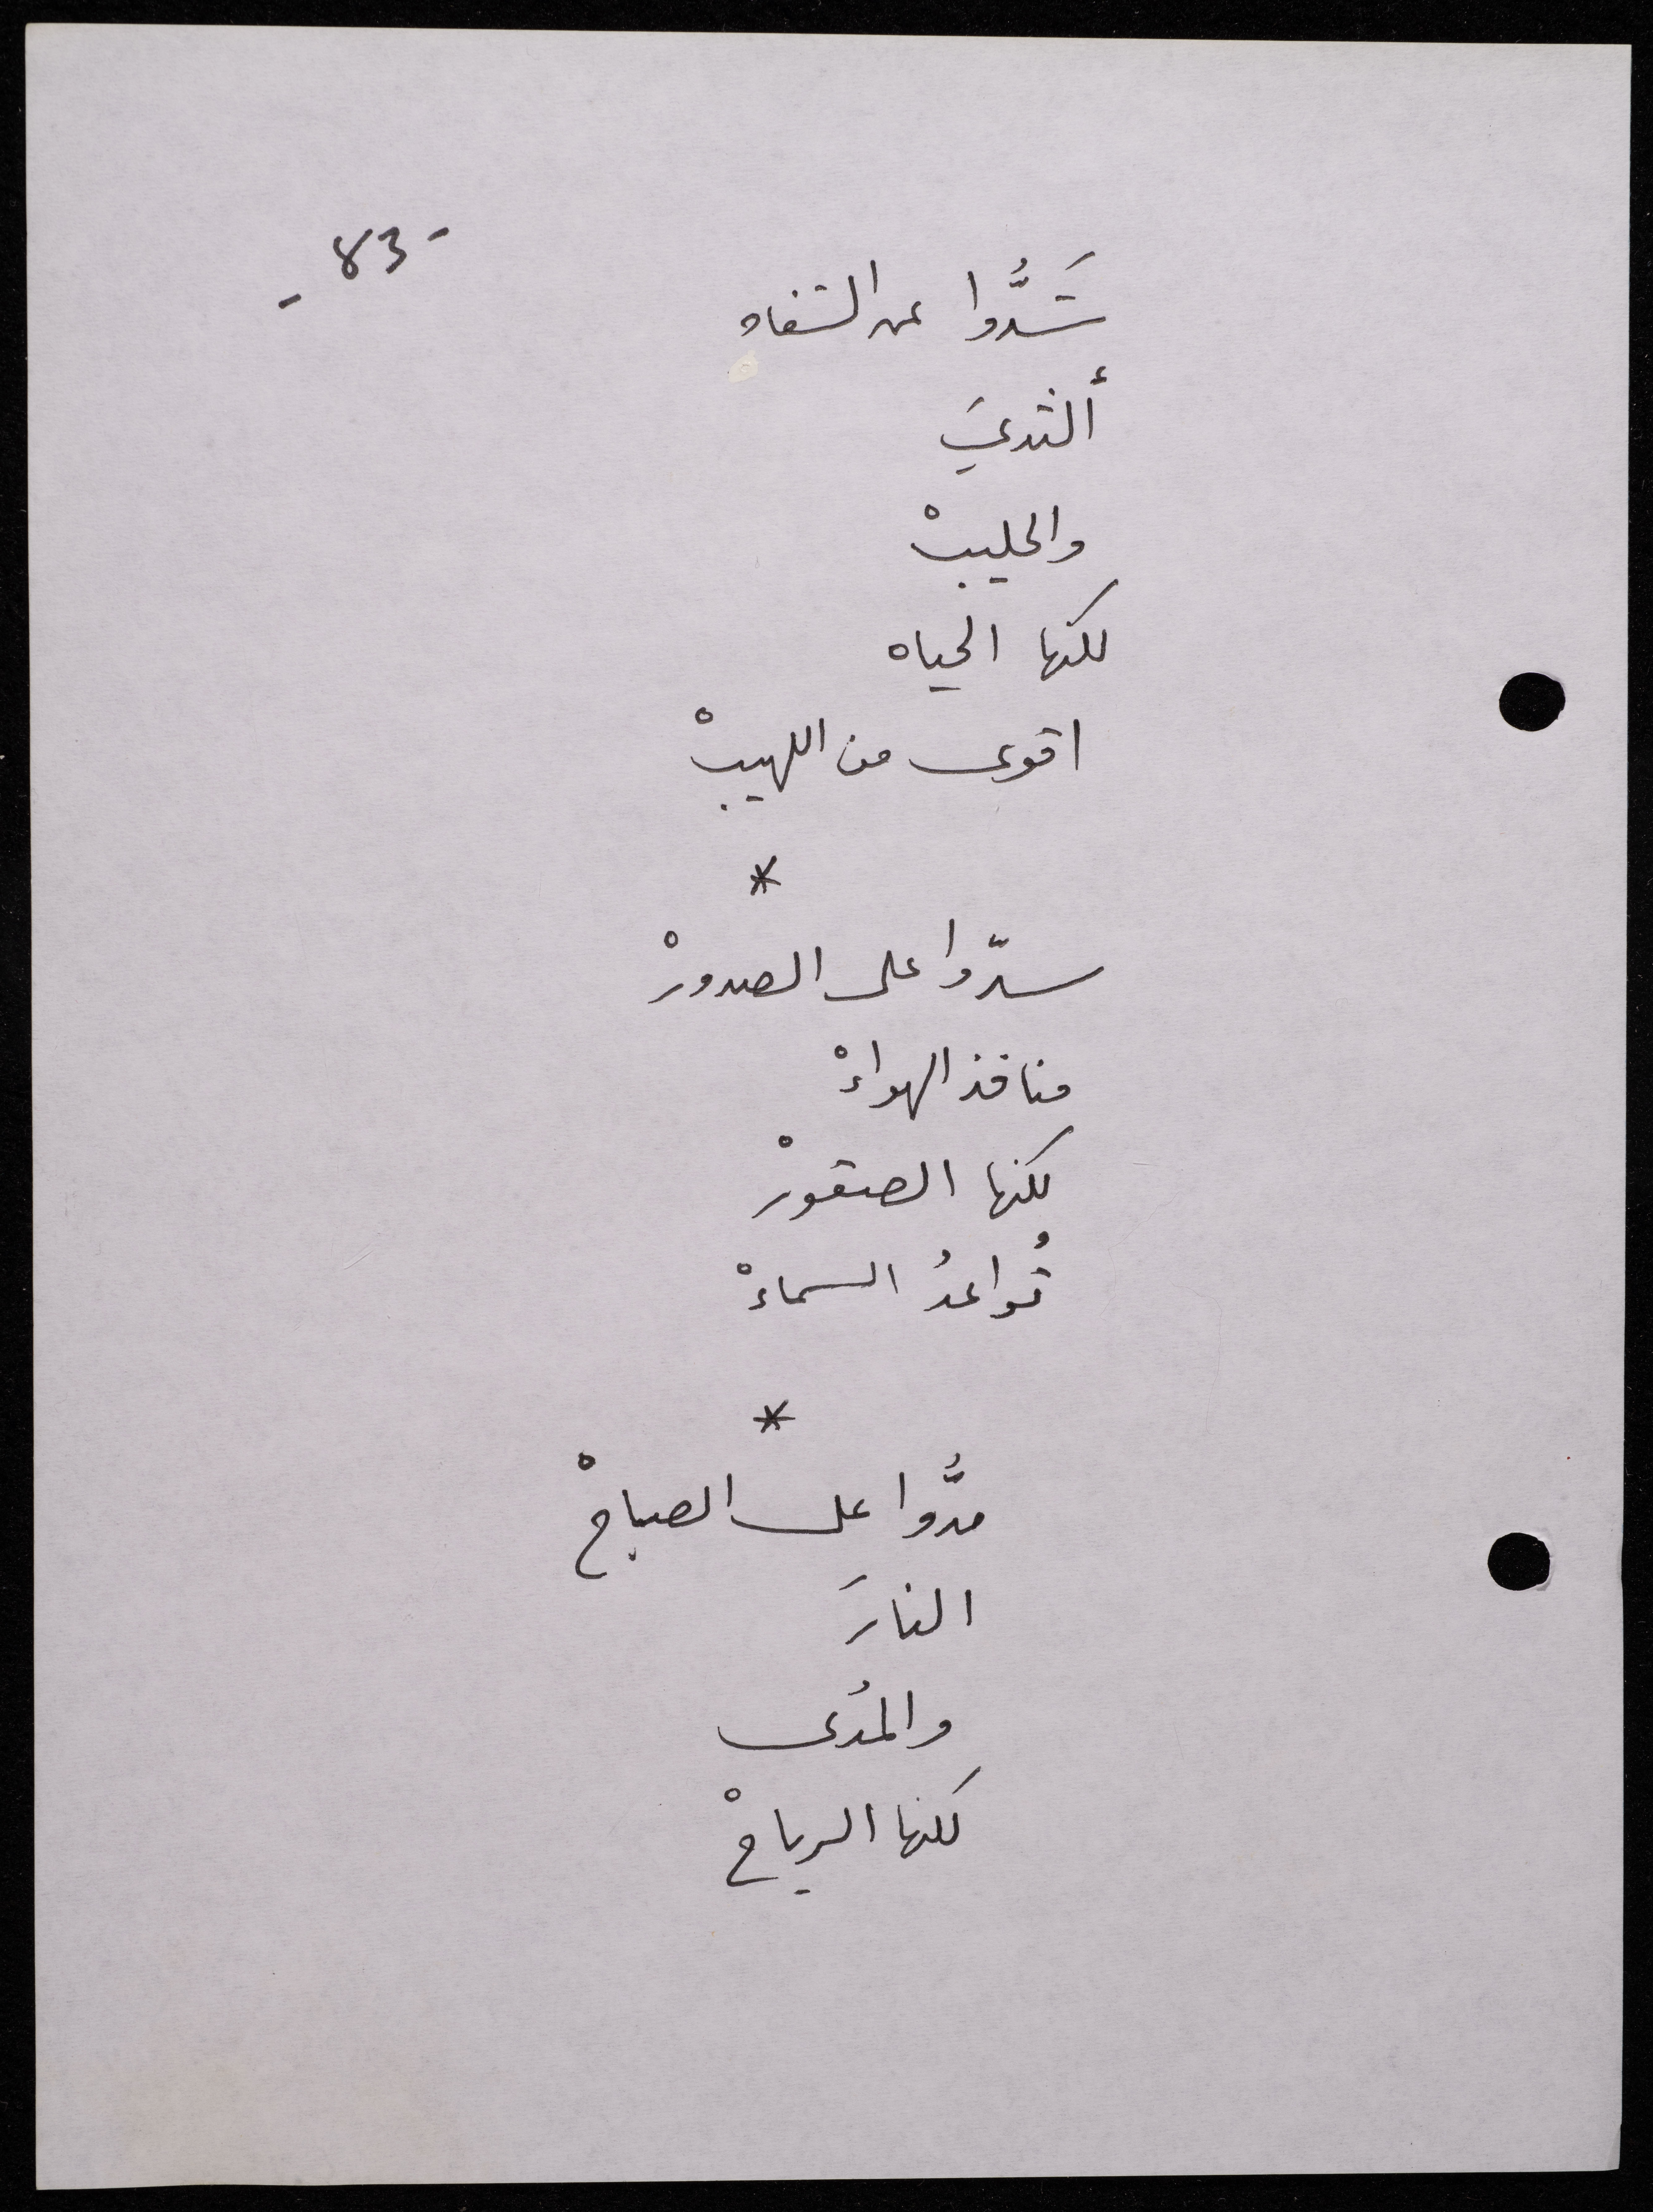 - 83 -
شَدُّوا عن الشفاه
ألثديَ
والحليبْ
لكنها الحياه
اقوى من اللهيبْ
*
سدّوا على الصدورْ
منافذ الهواءْ
لكنها الصقورْ
تُواعدُ السماءْ
*
مدُّوا على الصباحْ
النارَ
والمُدى
لكنها الرياحْ